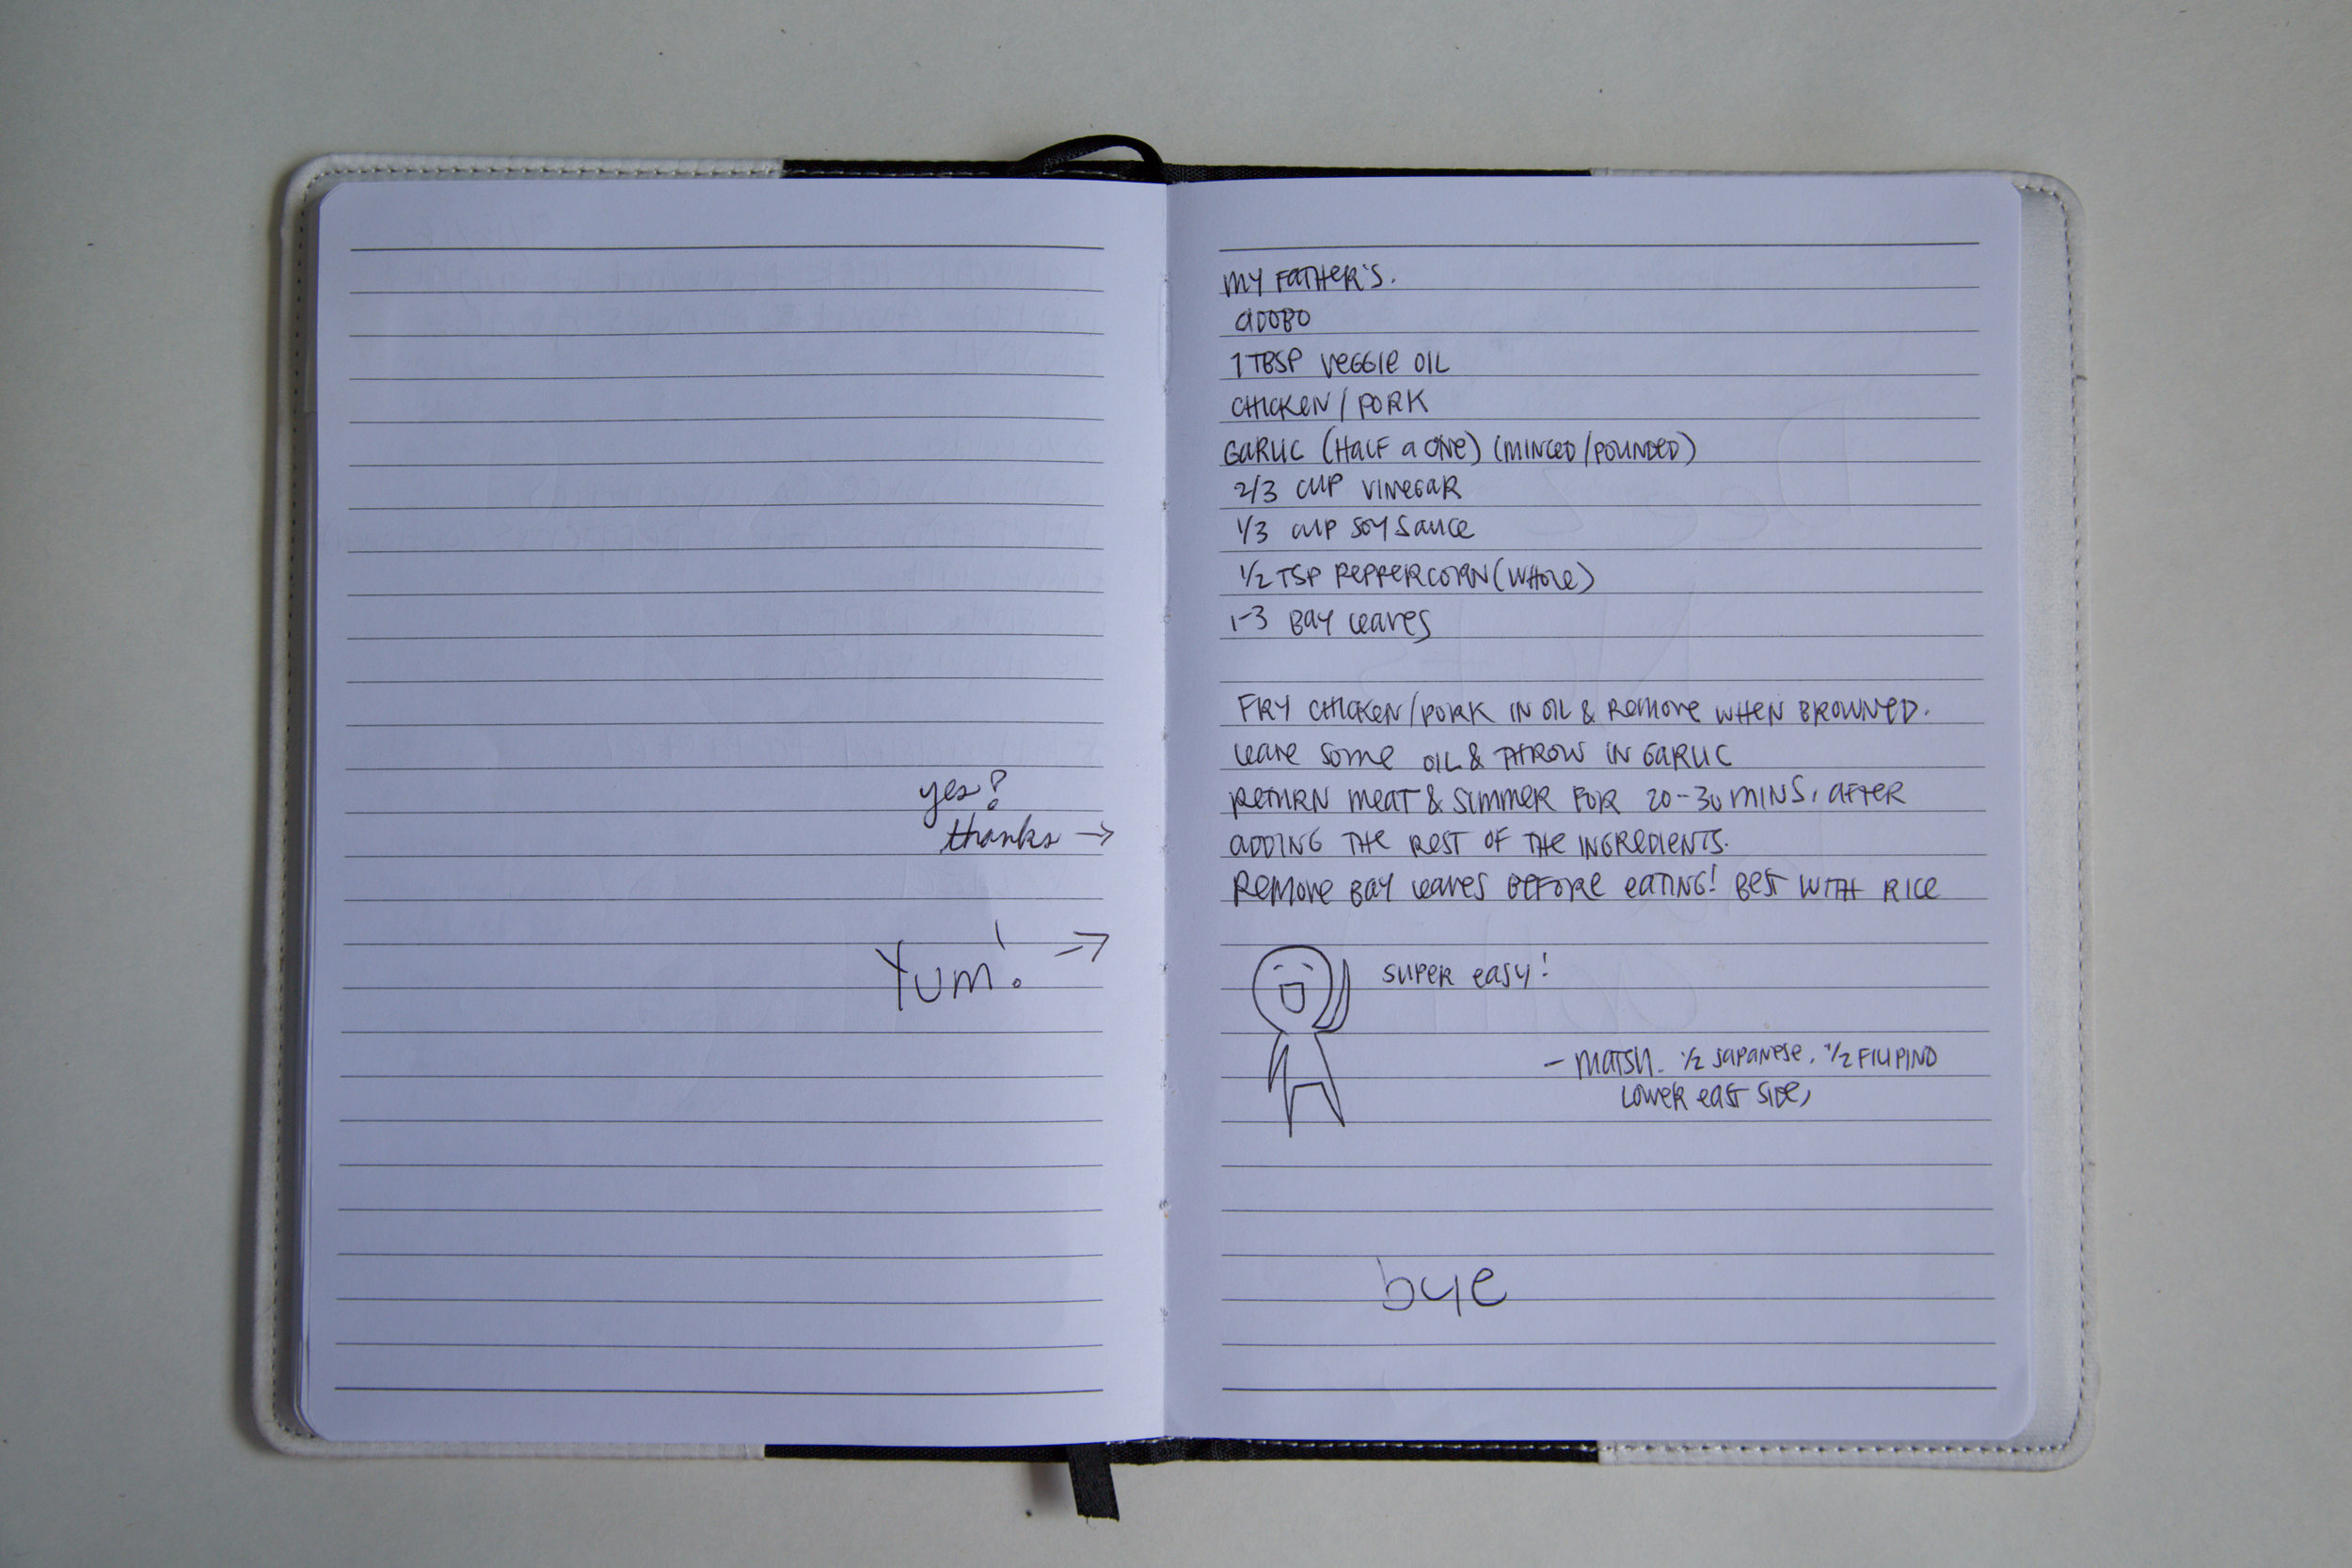 yes!
thanks →
Yum! →
MY FATHER'S.
ADOBO
1 TBSP VEGGIE OIL
CHICKEN / PORK
GARLIC (HALF A ONE) (MINCED/POUNDED)
2/3 CUP VINEGAR
1/3 CUP SOY SAUCE
1/2 TSP PEPPERCORN (WHOLE)
1-3 BAY LEAVES
FRY CHICKEN/PORK IN OIL & REMOVE WHEN BROWNED.
LEAVE SOME OIL & THROW IN GARLIC
RETURN MEAT & SIMMER FOR 20-30 MINS, AFTER
ADDING THE REST OF THE INGREDIENTS.
REMOVE BAY LEAVES BEFORE EATING! BEST WITH RICE
SUPER EASY!
- 1/2 JAPANESE. 1/2 FILIPINO
LOWER EAST SIDE,
bye